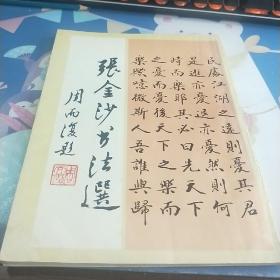 民處江湖之遠則憂其君
是進亦憂退亦憂然則何
時而樂耶其必曰先天下
之憂而憂後天下之樂而
樂歟噫微斯人吾誰與歸
張金沙书法選
周而復題